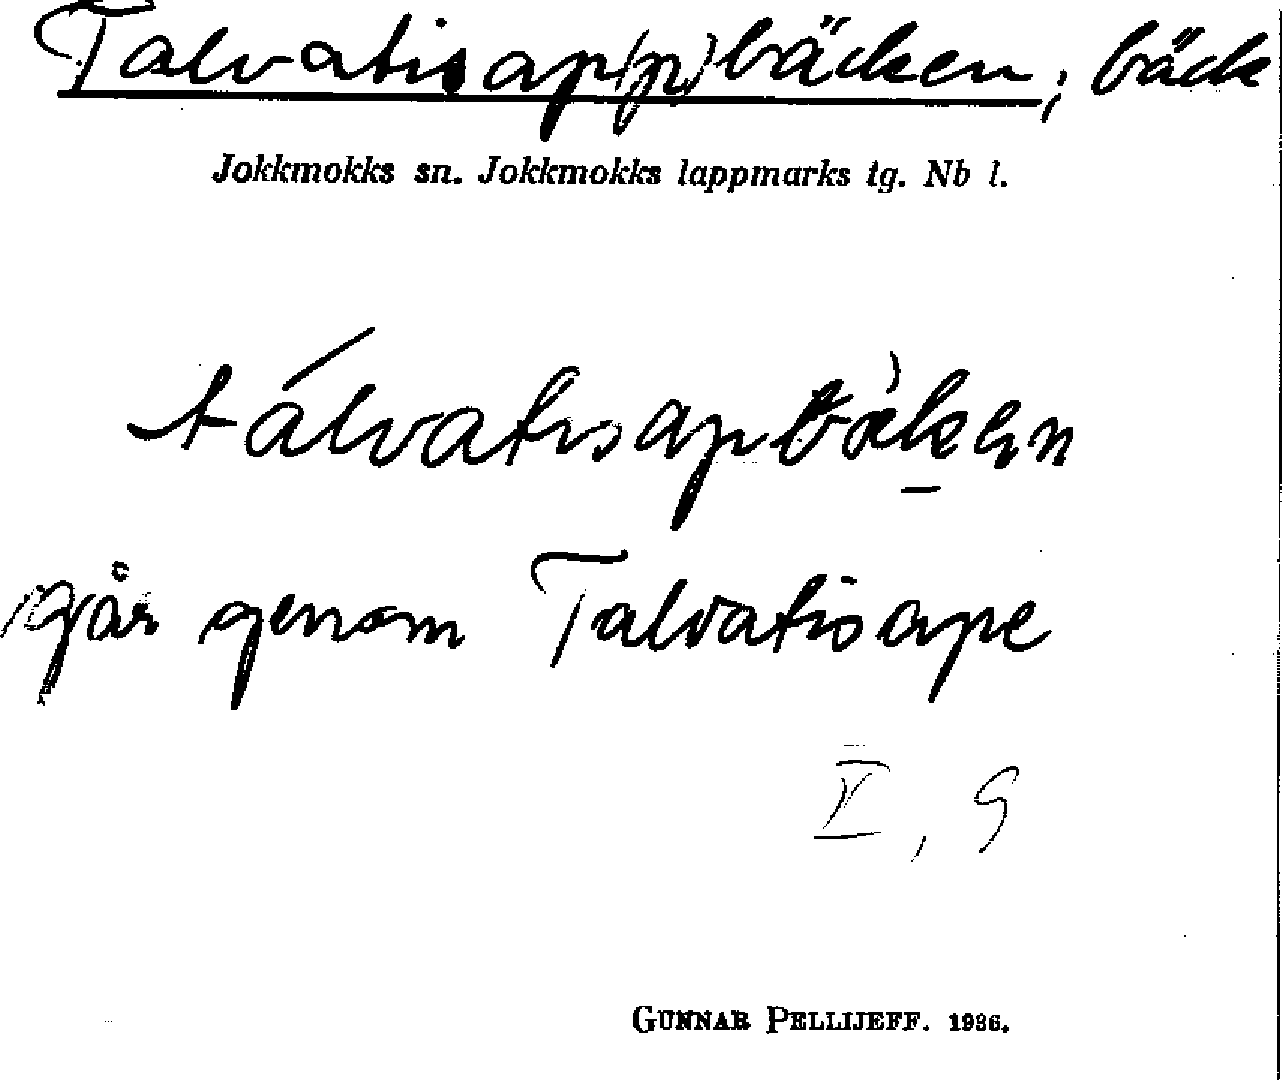 Talvatisap(p)bäcken, bäck
Jokkmokks sn. Jokkmokks lappmarks tg. Nb l.
tálvatisapbäkən
går genom Talvatisape
V, 9
GUNNAR PELLIJEFF. 1936.